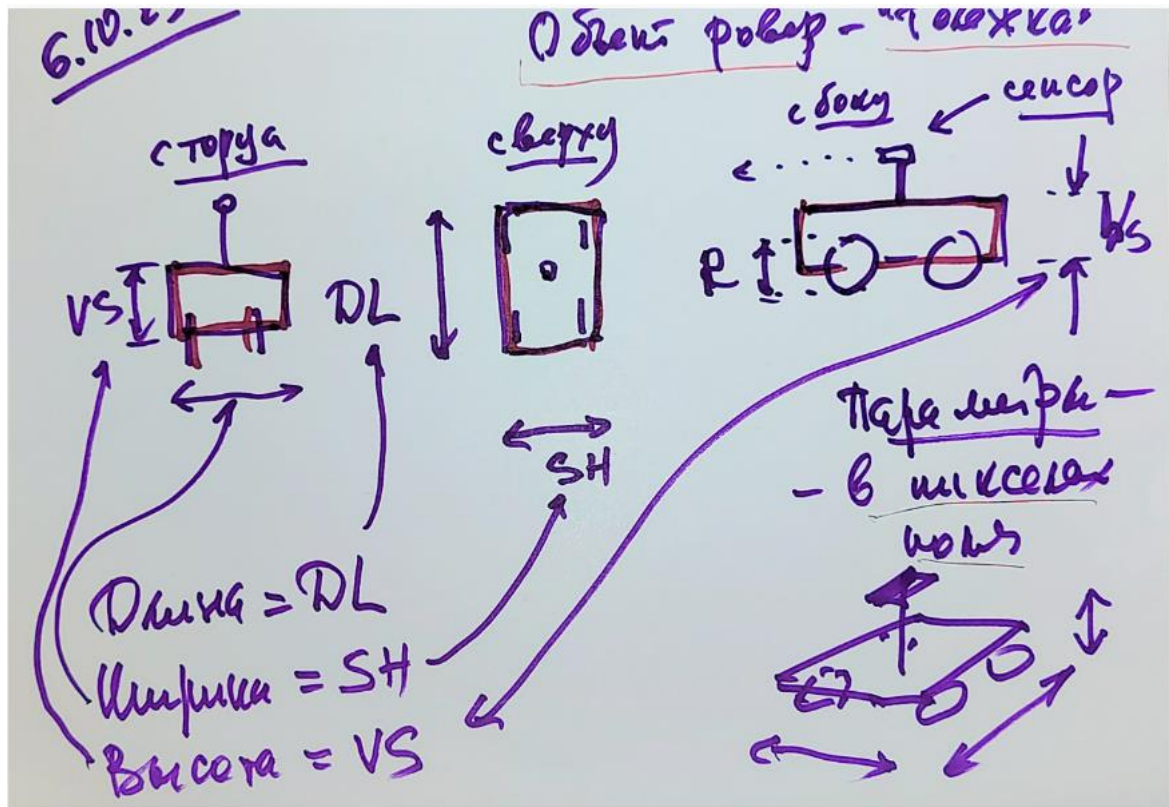 6.10.2
Объект ровер - "Тележка"
с торца
сверху
с боку
сенсор
VS
DL
R
VS
SH
Параметры -
- в пикселах
поля
Длина = DL
Ширина = SH
Высота = VS